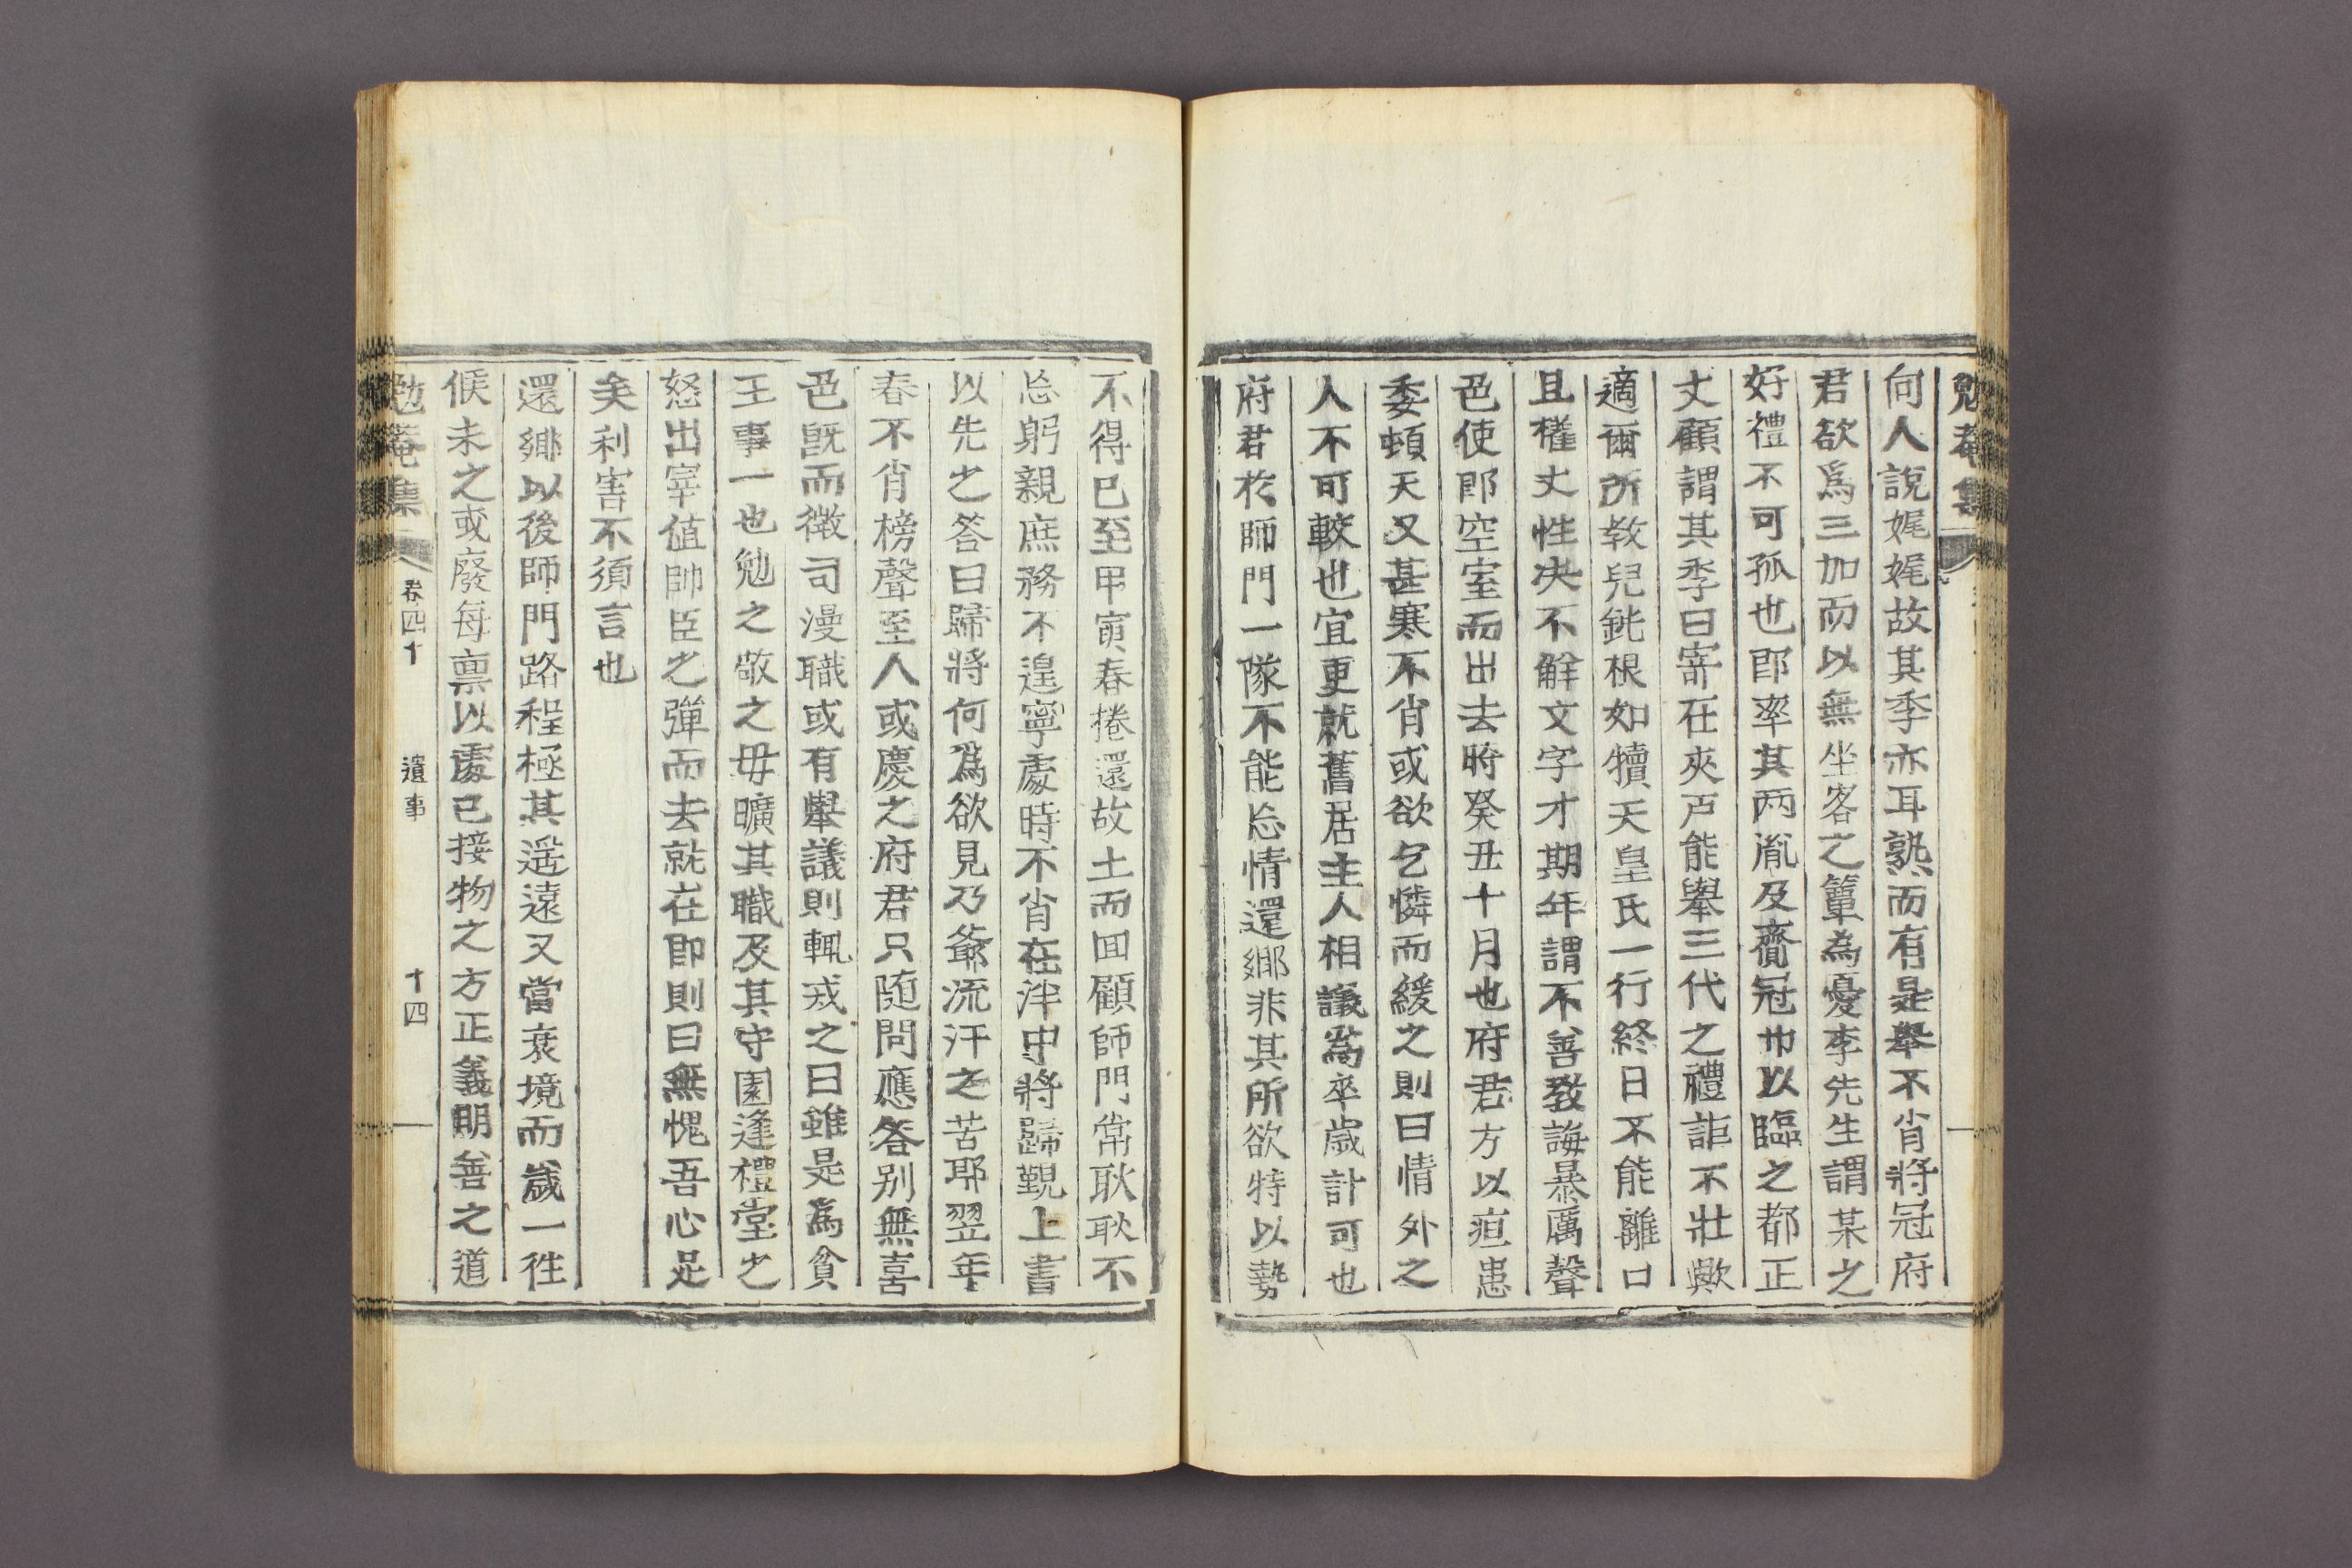 勉菴集
向人說娓娓故其季亦耳熟而有是舉不肖將冠府
君欲爲三加而以無坐客之簞為憂李先生謂某之
好禮不可孤也卽率其两胤及賫冠巾以臨之都正
丈顧謂其季曰寄在夾戶能舉三代之禮詎不壯歟
適爾所敎兒鈍根如犢天皇氏一行終日不能離口
且權丈性决不解文字才期年謂不善敎誨暴厲聲
色使卽空室而出去時癸丑十月也府君方以疸患
委頓天又甚寒不肖或欲乞憐而緩之則曰情外之
人不可較也宜更就舊居主人相議爲卒歲計可也
府君於師門一隊不能忘情還鄉非其所欲特以勢
不得已至甲寅春捲還故土而回顧師門常耿耿不
忘躬親庶務不遑寧處時不肖在泮中將歸覲上書
以先之答曰歸將何爲欲見乃爺流汗之苦耶翌年
春不肖榜聲至人或慶之府君只随問應答别無喜
色旣而徵司漫職或有擧議則輒戒之曰雖是爲貧
王事一也勉之敬之毋曠其職及其守園逢禮堂之
怒出宰值帥臣之彈而去就在卽則曰無愧吾心足
矣利害不須言也
還鄉以後師門路程極其遥遠又當衰境而歲一徃
候未之或廢每禀以處己接物之方正義明善之道
勉菴集 卷四十 遺事 十四